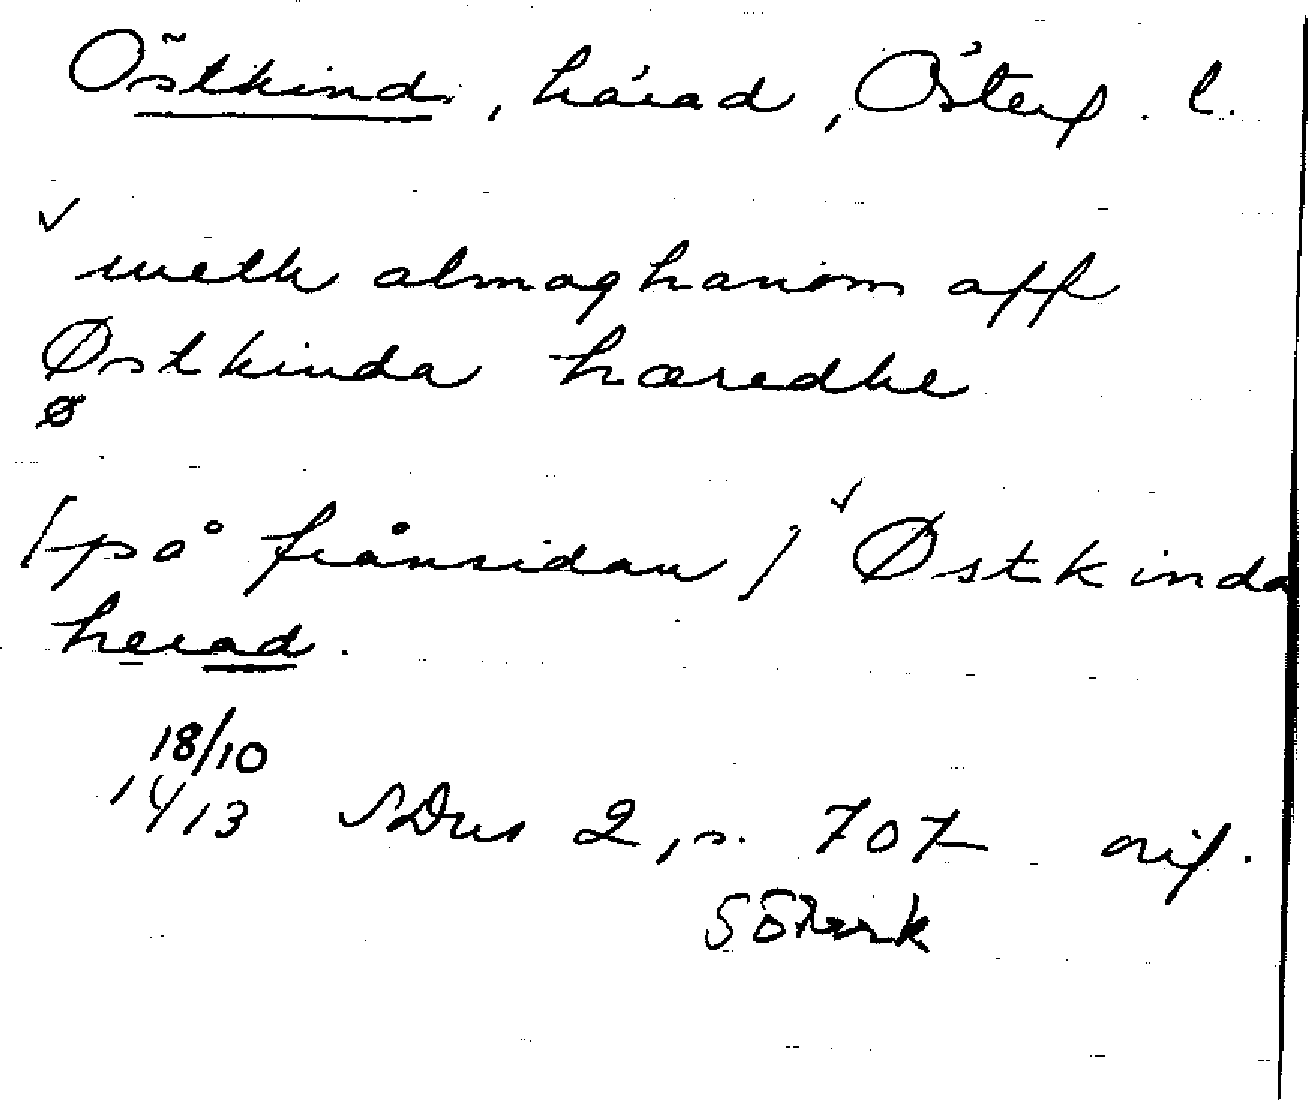 Östkind, härad, Österg. l.
✓
meth almoghanom aff
Østkinda hæredhe
ø
/på frånsidan/ ✓ Østkinda
herad.
18/10
1413 SDns 2, s. 707 orig.